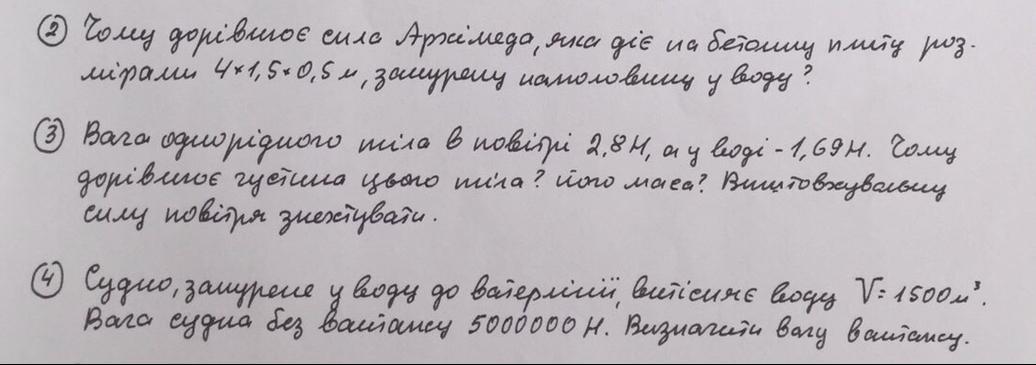 ② Чому дорівнює сила Архімеда, яка діє на бетонну плиту роз-
мірами 4×1,5×0,5 м, занурену наполовину у воду?
③ Вага однорідного тіла в повітрі 2,8Н, а у воді - 1,69Н. Чому
дорівнює густина цього тіла? його маса? Виштовхувальну
силу повітря знехтувати.
④ Судно, занурене у воду до ватерлінії, витісняє воду V=1500м³.
Вага судна без вантажу 5000000 Н. Визначити вагу вантажу.